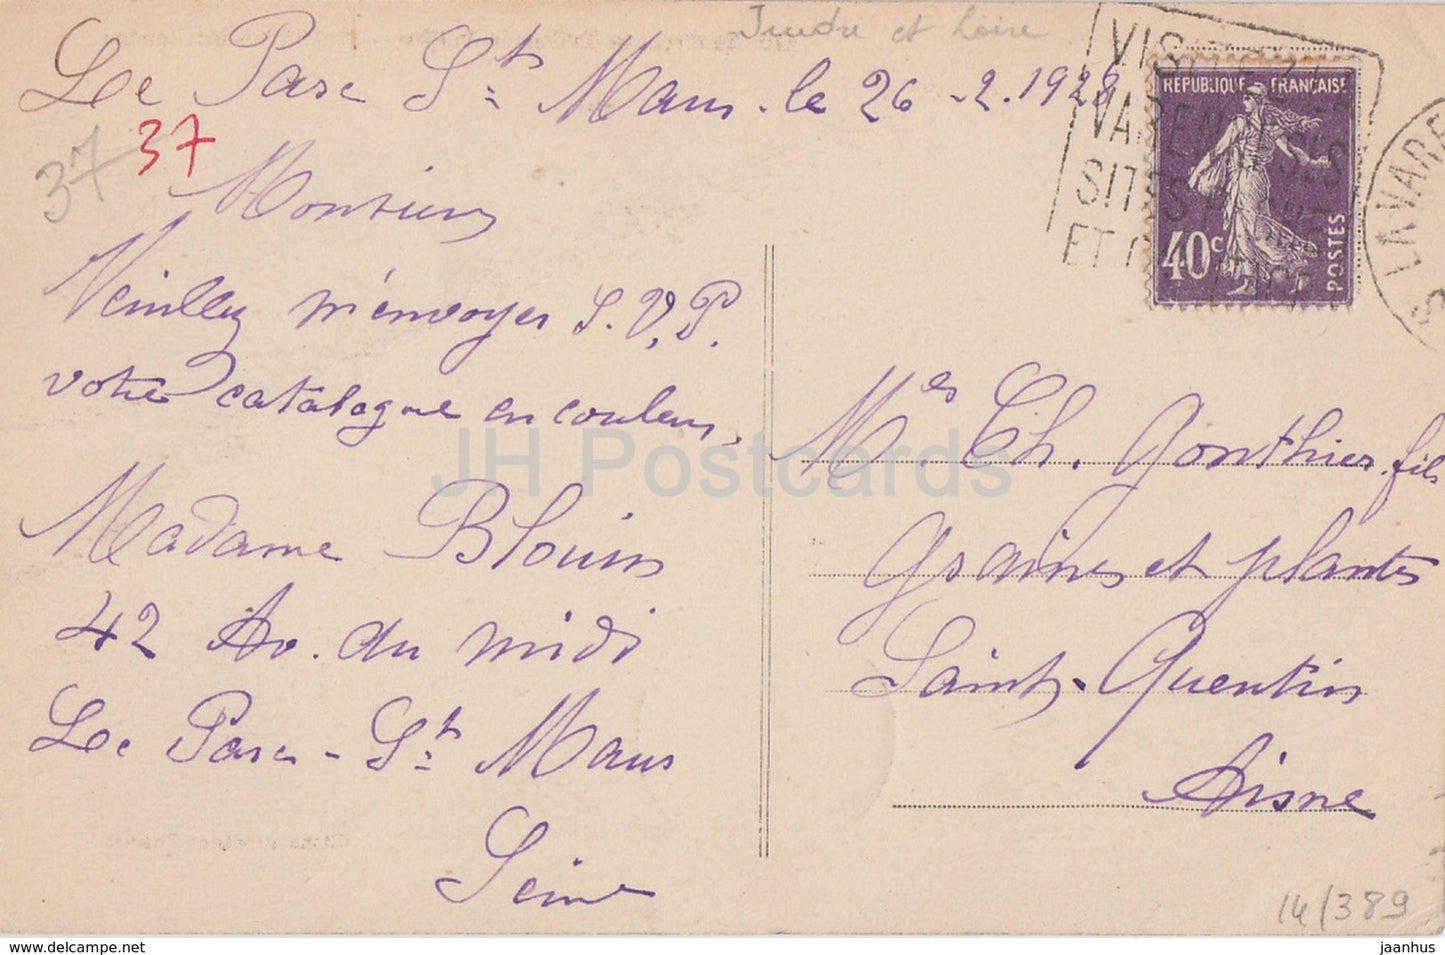 Indre et Loire
Le Parc St Maur. le 26-2.1928
37 37
Monsieur
Veuillez m'envoyer S.V.P.
votre catalogue en couleurs.
Madame Blouin
42 Av. du midi
Le Parc - St Maur
Seine
VISITEZ
VARENNE SES
SITES
ET
REPUBLIQUE FRANÇAISE
40c
POSTES
LA VARE
Mes. Ch. Gonthier fils
graines et plantes
Saint-Quentin
Aisne
14/389
JH Postcards
www.jhpostcards.com
jaanhus